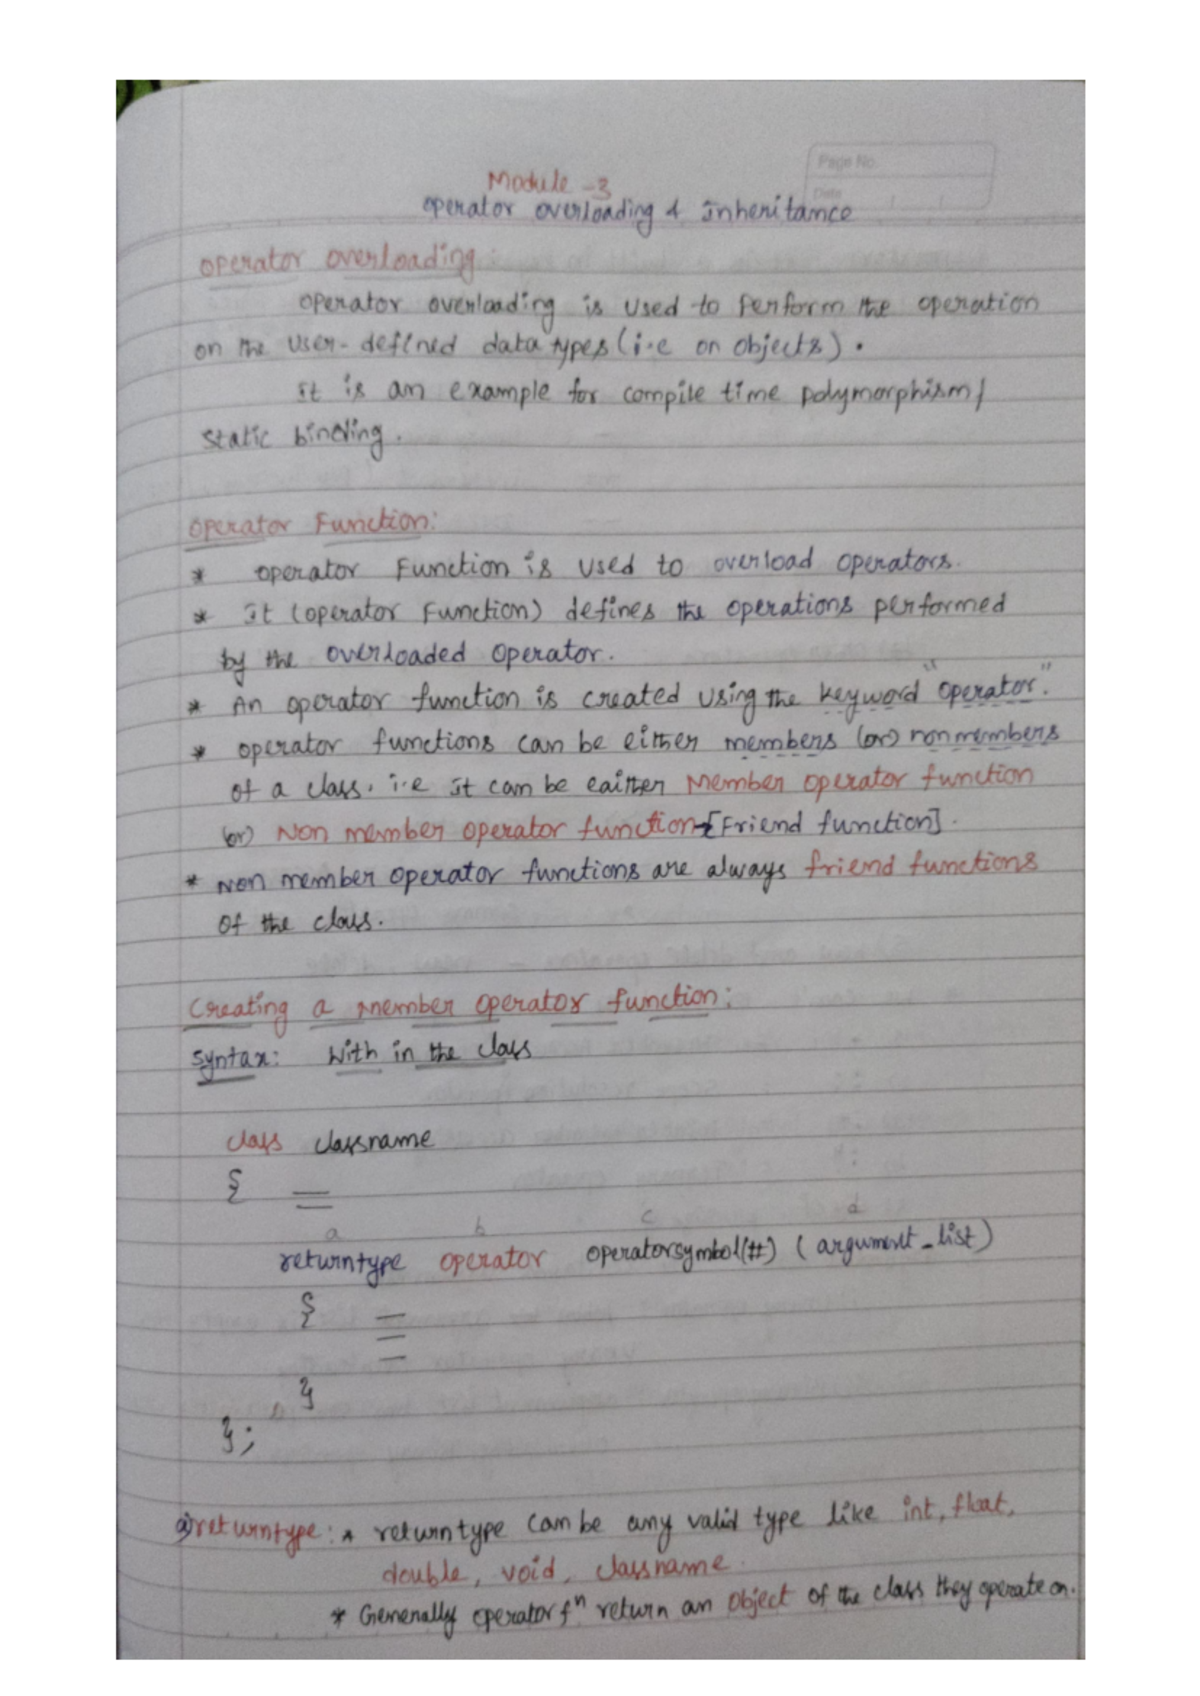 Page No.
Date
Module - 3
operator overloading & Inheritance
operator overloading:
operator overloading is used to Perform the operation
on the user-defined data types (i.e on objects).
It is an example for compile time polymorphism/
static binding.
operator Function:
* operator Function is used to overload operators.
* It (operator Function) defines the operations performed
by the overloaded operator.
* An operator function is created using the keyword "operator".
* operator functions can be either members (or) nonmembers
of a class. i.e It can be eaither Member operator function
(or) Non member operator function [Friend function].
* Non member operator functions are always friend functions
of the class.
Creating a member operator function:
Syntax: With in the class
class classname
{
a b c d
returntype operator operatorsymbol(#) (argument_list)
{
}
};
a) returntype: * returntype can be any valid type like int, float,
double, void, classname.
* Generally operator fn return an object of the class they operate on.